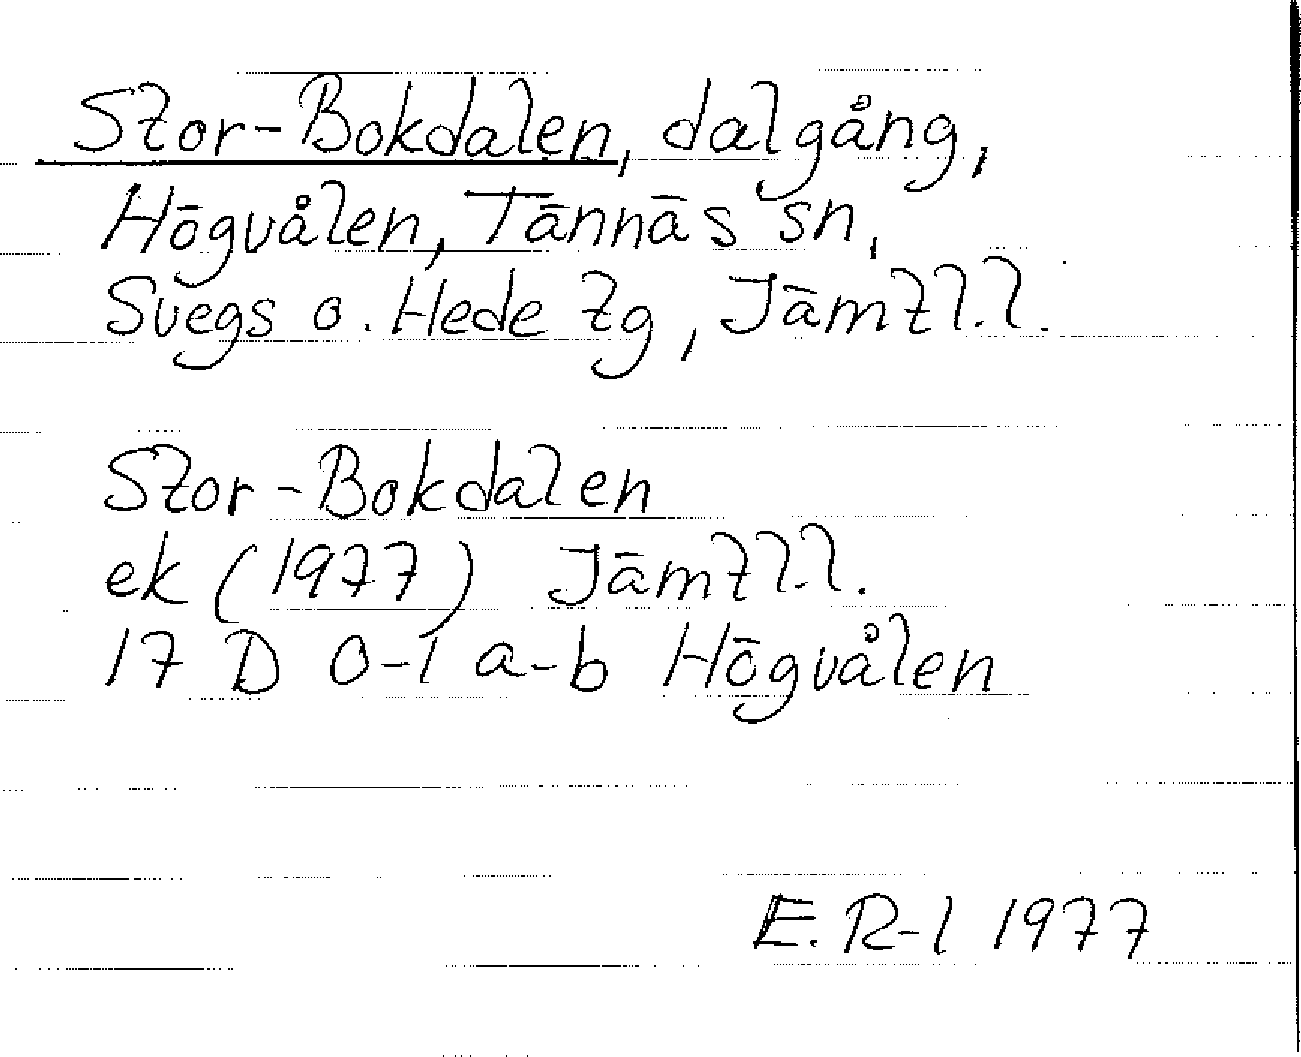 Stor-Bokdalen, dalgång,
Högvålen, Tännäs sn,
Svegs o. Hede tg, Jämtl.l.
Stor-Bokdalen
ek (1977) Jämtl.l.
17 D 0-1 a-b Högvålen
E. R-l 1977